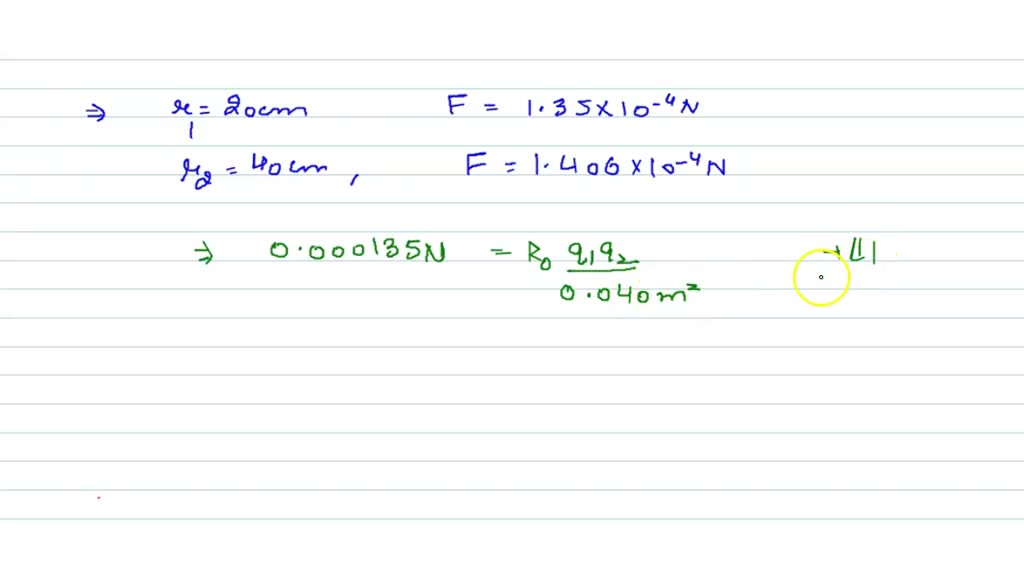 ⇒ r₁ = 20cm F = 1.35×10⁻⁴N
r₂ = 40cm, F = 1.406×10⁻⁴N
⇒ 0.000135N = k₀ q₁q₂ / 0.040m²